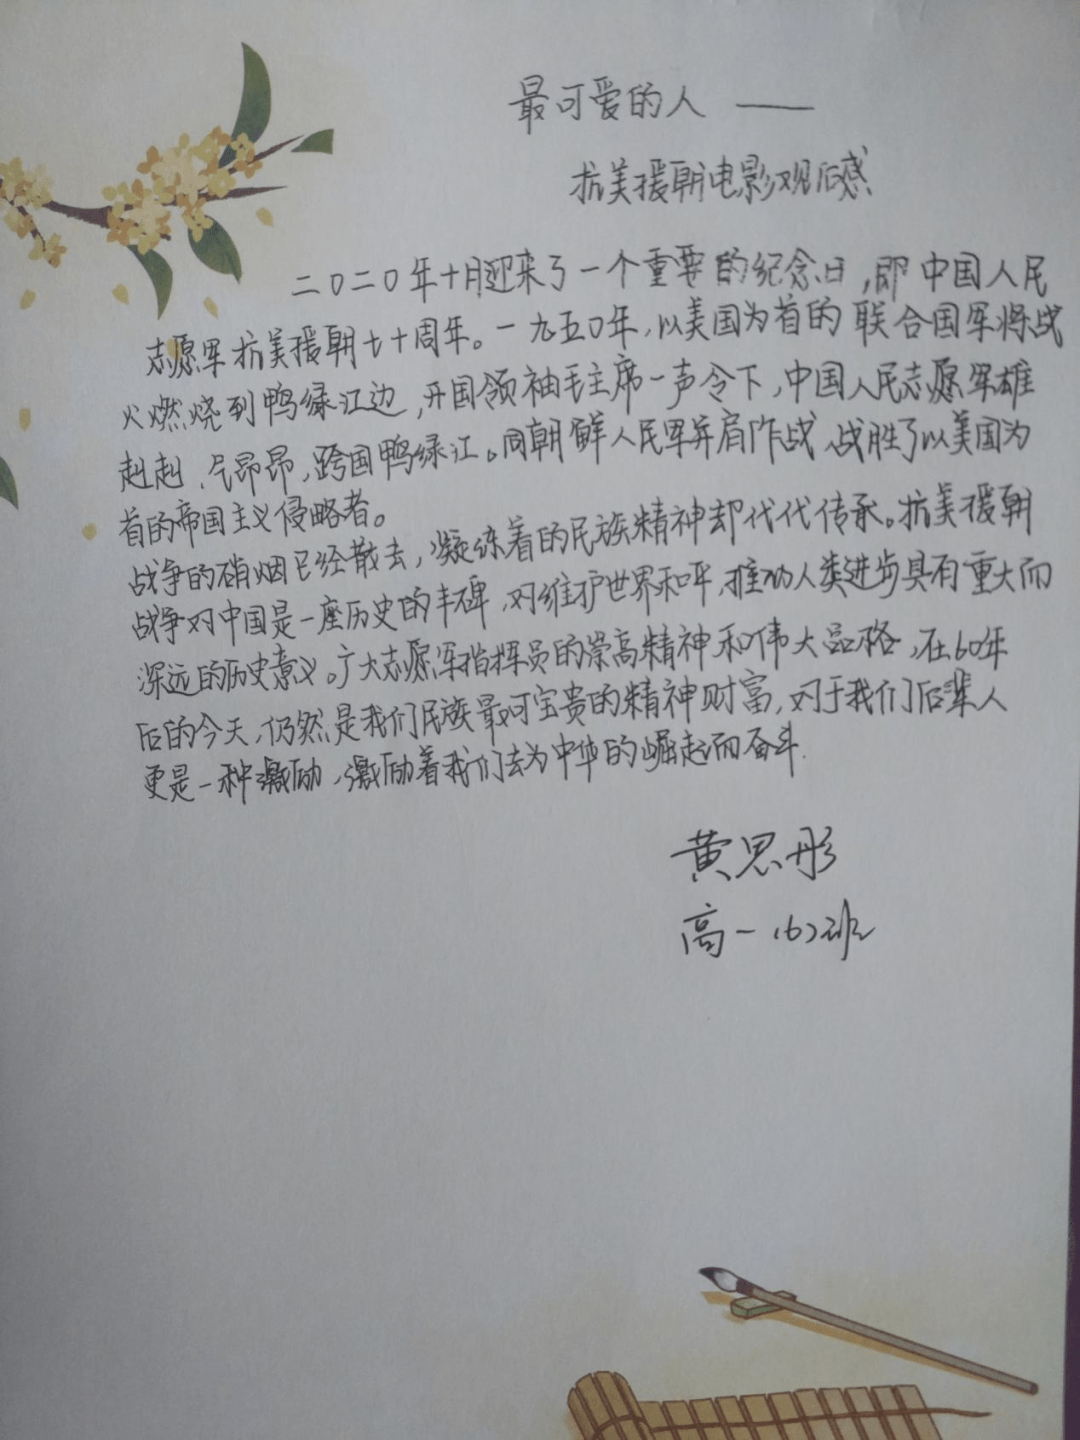 最可爱的人——
抗美援朝电影观后感
二〇二〇年十月迎来了一个重要的纪念日,即中国人民
志愿军抗美援朝七十周年。一九五〇年,以美国为首的联合国军将战
火燃烧到鸭绿江边,开国领袖毛主席一声令下,中国人民志愿军雄
赳赳,气昂昂,跨国鸭绿江。同朝鲜人民军并肩作战、战胜了以美国为
首的帝国主义侵略者。
战争的硝烟已经散去,凝练着的民族精神却代代传承。抗美援朝
战争对中国是一座历史的丰碑,对维护世界和平,推动人类进步具有重大而
深远的历史意义。广大志愿军指挥员的崇高精神和伟大品格,在60年
后的今天,仍然是我们民族最可宝贵的精神财富,对于我们后辈人
更是一种激励,激励着我们去为中华的崛起而奋斗.
黄思彤
高一(6)班